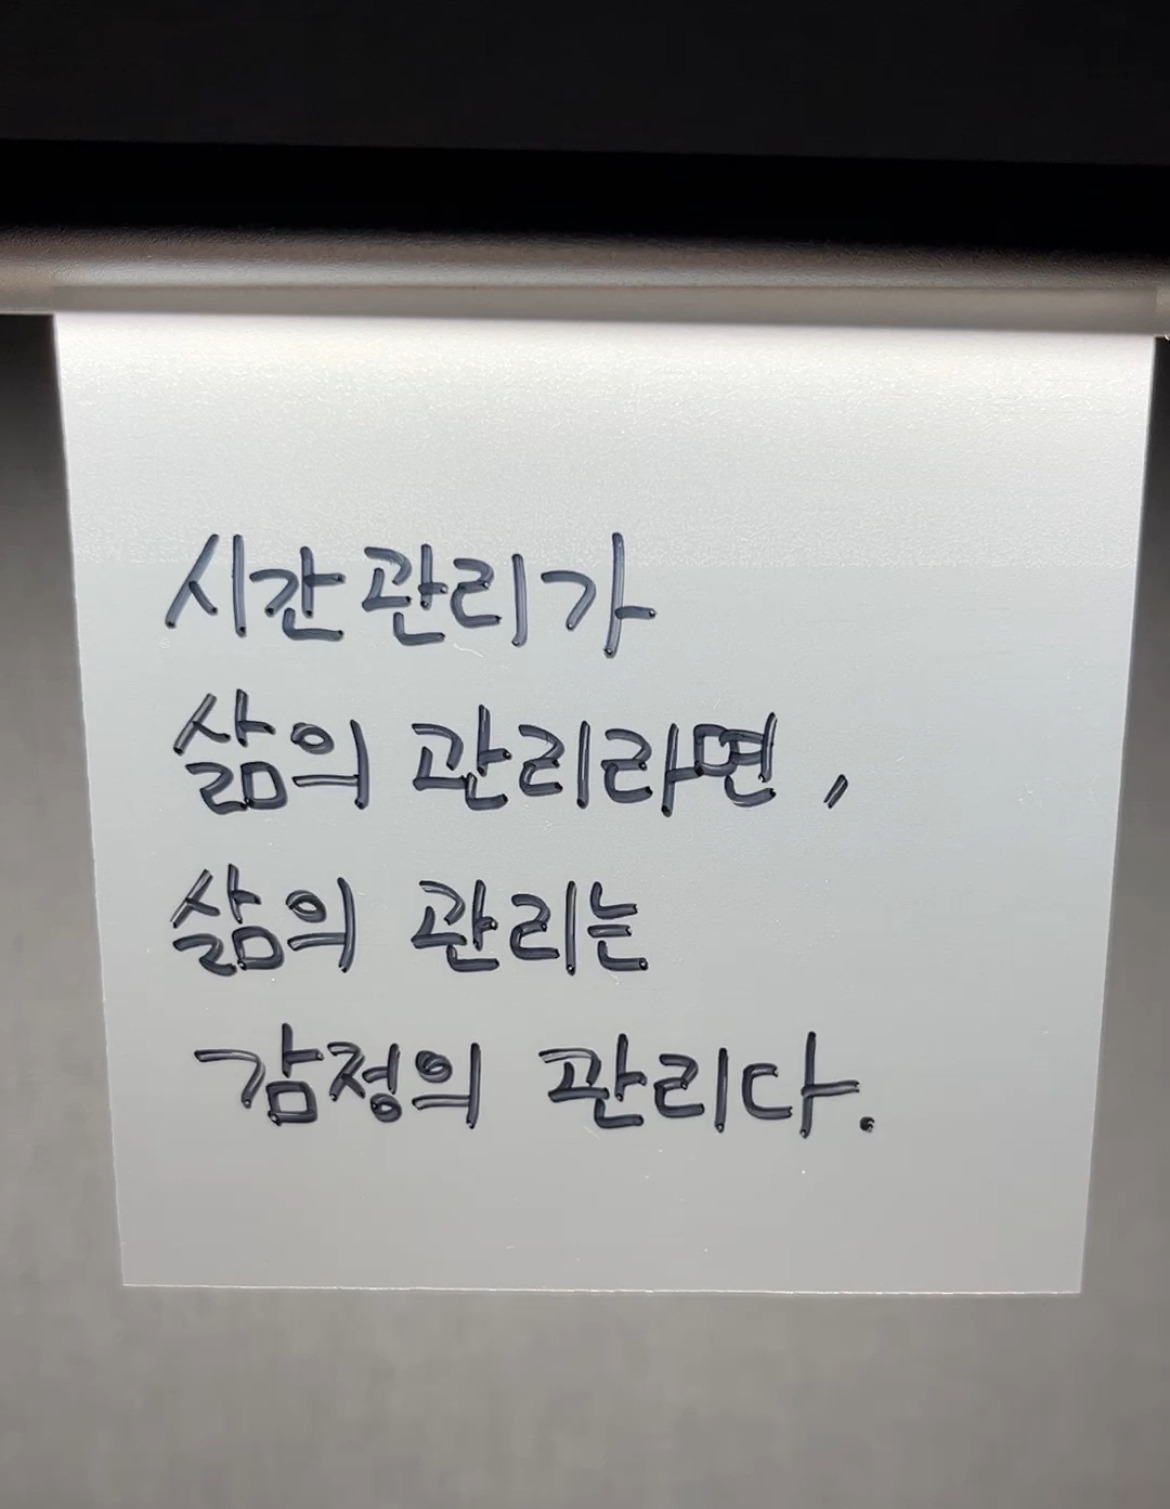 시간관리가
삶의 관리라면,
삶의 관리는
감정의 관리다.